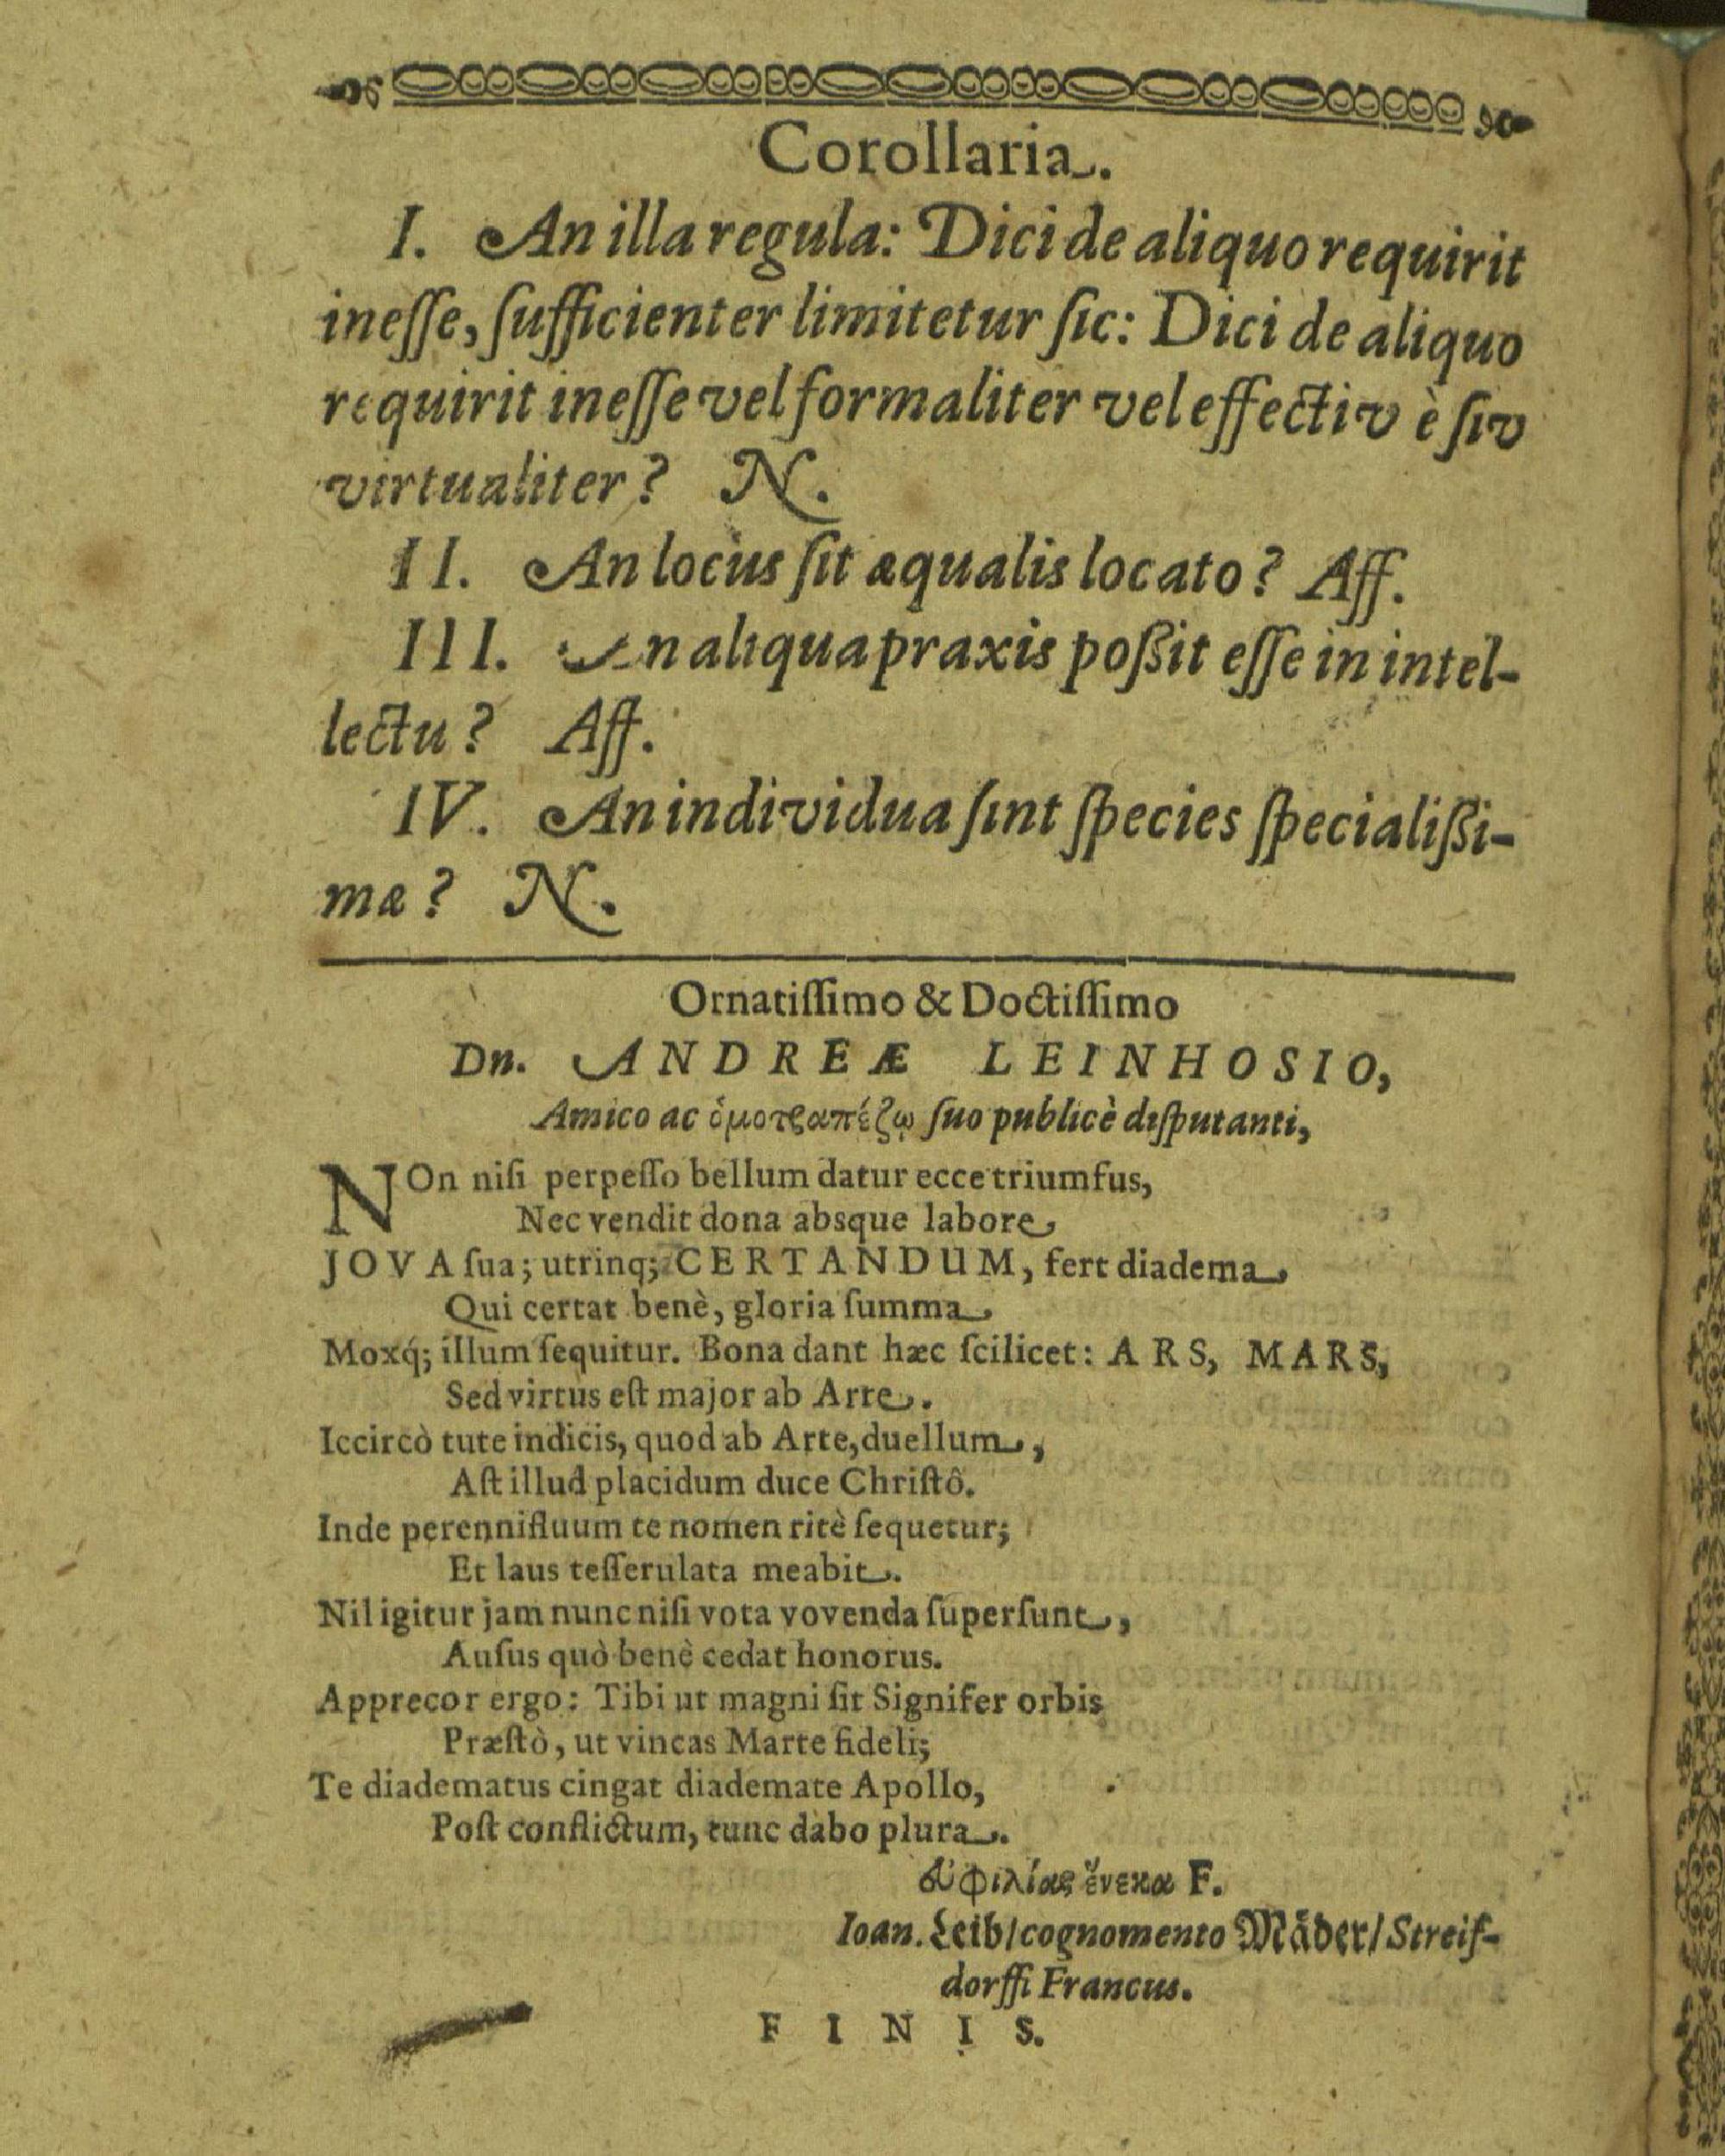 Corollaria.
I. An illa regula: Dici de aliquo requirit
inesſe, ſufficienter limitetur ſic: Dici de aliquo
requirit inesſe vel formaliter vel effectiv è ſiv
virtualiter? N.
II. An locus ſit æqualis locato? Aff.
III. An aliqua praxis poßit eſſe in intel-
lectu? Aff.
IV. An individua ſint ſpecies ſpecialißi-
mæ? N.
Ornatiſſimo & Doctiſſimo
Dn. ANDREÆ LEINHOSIO,
Amico ac ὁμοτραπέζῳ ſuo publicè diſputanti,
NOn niſi perpeſſo bellum datur ecce triumfus,
Nec vendit dona absque labore
JOVA ſua; utrinq; CERTANDUM, fert diadema
Qui certat benè, gloria ſumma
Moxq́; illum ſequitur. Bona dant hæc ſcilicet: ARS, MARS,
Sed virtus eſt major ab Arte.
Iccircò tute indicis, quod ab Arte, duellum,
Aſt illud placidum duce Chriſtô.
Inde perennifluum te nomen ritè ſequetur;
Et laus teſſerulata meabit.
Nil igitur jam nunc niſi vota vovenda ſuperſunt,
Auſus quò benè cedat honorus.
Apprecor ergo: Tibi ut magni ſit Signifer orbis
Præſtò, ut vincas Marte fideli;
Te diadematus cingat diademate Apollo,
Poſt conflictum, tunc dabo plura.
φιλίας ἕνεκα F.
Ioan. Leib/ cognomento Mäder/ Streif-
dorffi Francus.
FINIS.